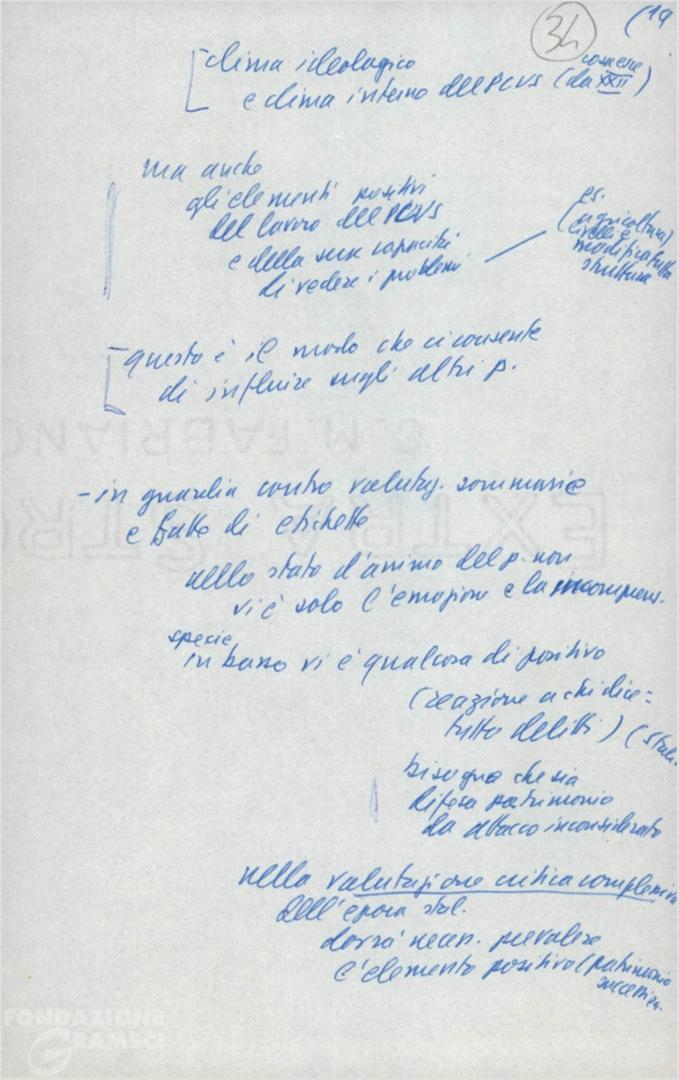 34
(19
clima ideologico
e clima interno del PCUS (da XXII)
ma anche
gli elementi positivi
del lavoro del PCUS
e della sua capacità
di vedere i problemi
es.
(agricoltura)
modificata
struttura
questo è il modo che ci consente
di influire sugli altri p.
- in guardia contro valutaz. sommarie
e fatte di etichette
nello stato d'animo del p. non
vi è solo l'emozione e la incompren.
specie
in basso vi è qualcosa di positivo
(reazione a chi dice =
tutto delitti) (stal.
bisogna che sia
difeso patrimonio
da attacco inconsiderato
nella valutazione critica complessiva
dell'epoca stal.
dovrà necess. prevalere
l'elemento positivo (patrimonio
G. M. FABRIANO
EXTRA STRO
FONDAZIONE
GRAMSCI